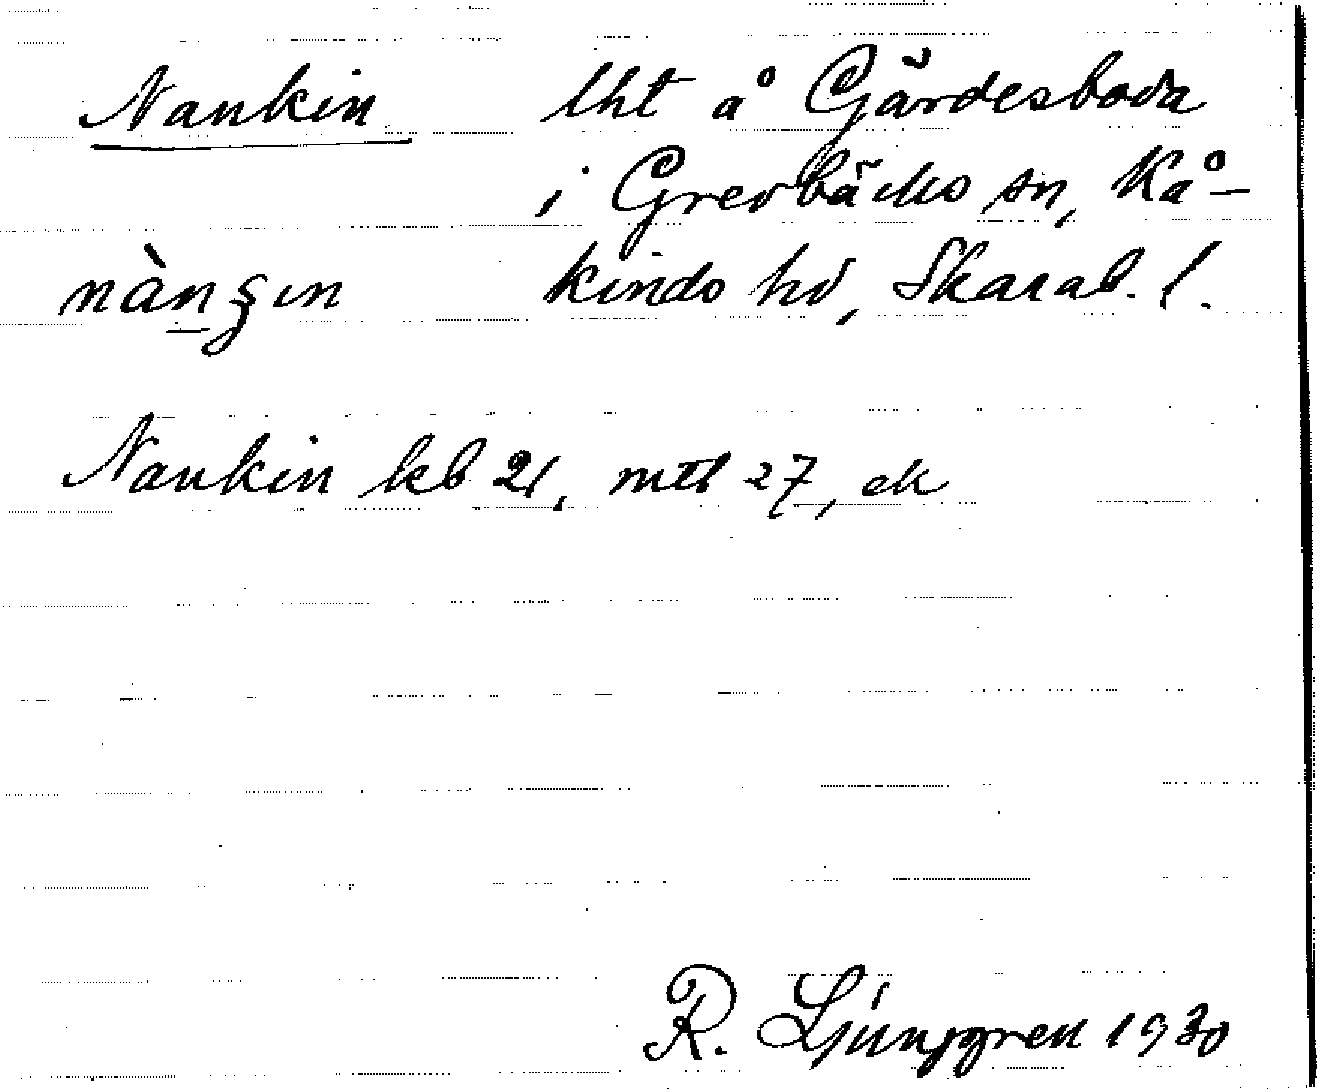 Nankin lht å Gärdesboda
i Grevbäcks sn, Kå-
nàngın kinds hd, Skarab. l.
Nankin kb 21, mtl 27, ek
R. Ljunggren 1930